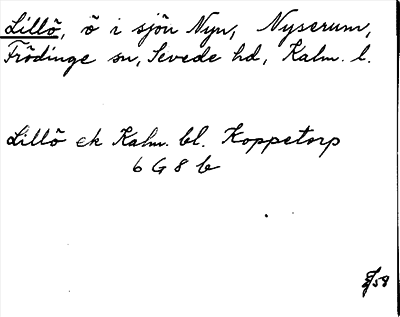 Lillö, ö i sjön Nyn, Nyserum,
Frödinge sn, Sevede hd, Kalm. l.
Lillö ek Kalm. bl. Koppetorp
6 G 8 b